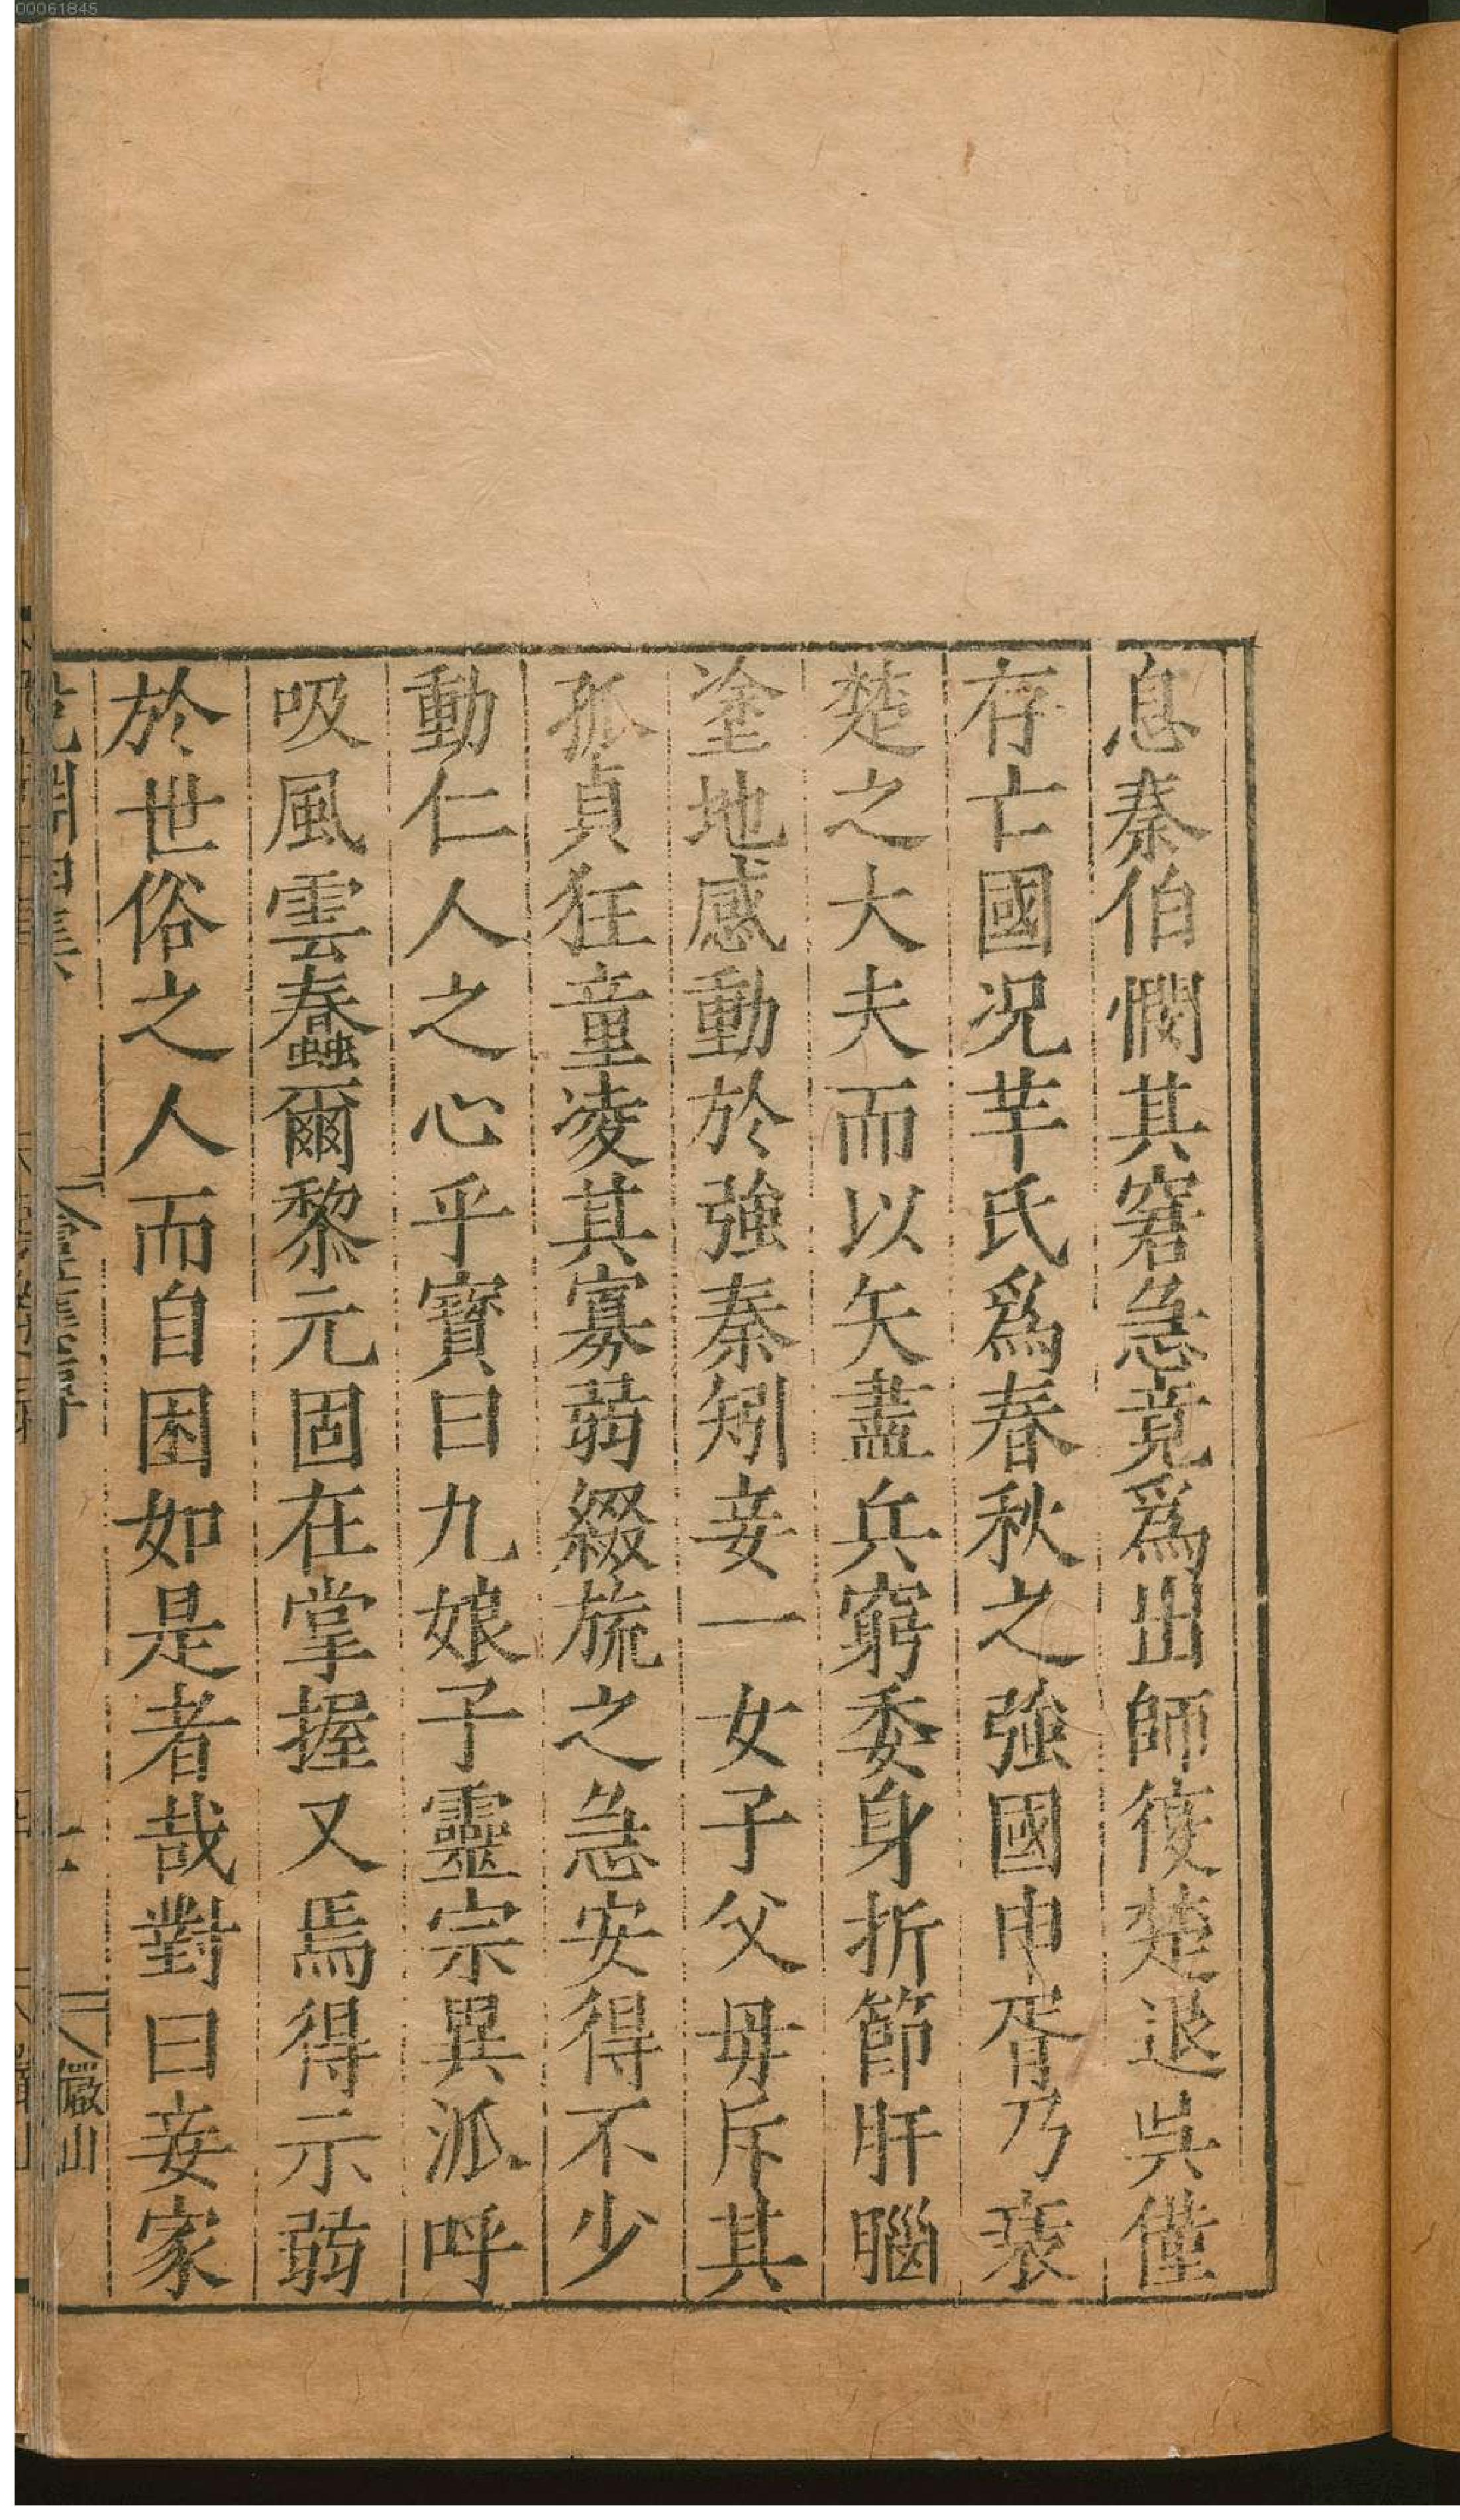 00061845
息秦伯憫其窘急竟爲出師復楚退吳僅
存亡國况芊氏爲春秋之強國申胥乃衰
楚之大夫而以矢盡兵窮委身折節肝腦
塗地感動於強秦矧妾一女子父毋斥其
孤貞狂童凌其寡弱綴旒之急安得不少
動仁人之心乎寳曰九娘子靈宗異派呼
吸風雲蠢爾黎元固在掌握又焉得示弱
於世俗之人而自困如是者哉對曰妾家
儼山